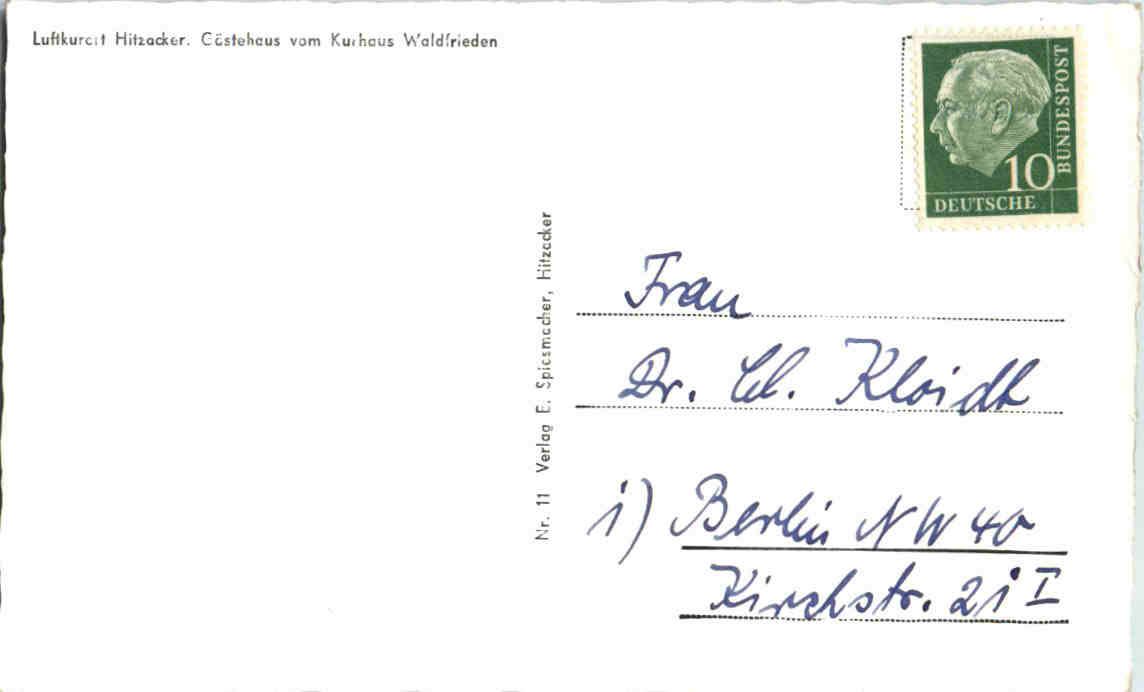 Luftkurort Hitzacker. Gästehaus vom Kurhaus Waldfrieden
BUNDESPOST
10
DEUTSCHE
Nr. 11 Verlag E. Spiesmacher, Hitzacker
Frau
Dr. Kloidt
1) Berlin NW 40
Kirchstr. 21 I